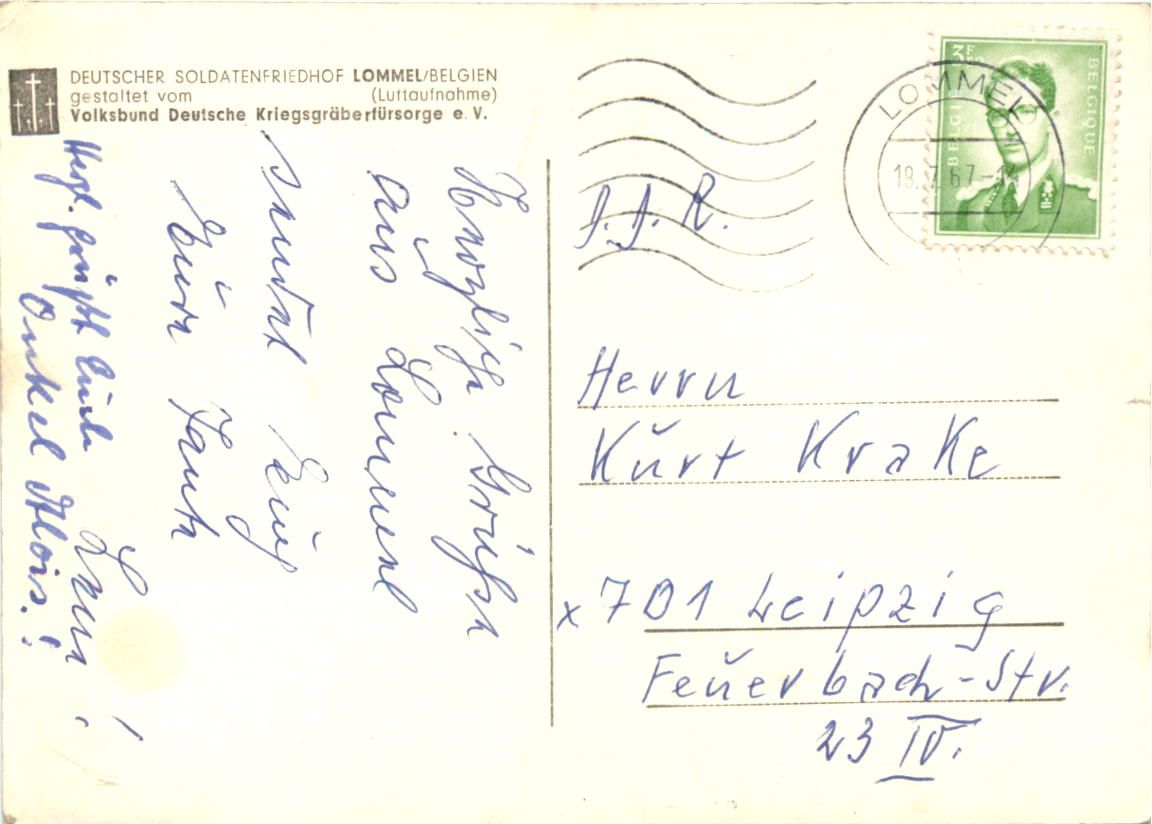 DEUTSCHER SOLDATENFRIEDHOF LOMMEL/BELGIEN
gestaltet vom (Luftaufnahme)
Volksbund Deutsche Kriegsgräberfürsorge e. V.
Herzliche Grüße
aus Lommel
sendet Euch
Eure Tante
Leni!
Herzl. grüßt Euch
Onkel Alois!
3F
BELGIE
BELGIQUE
LOMMEL
18. 7. 67-14
Herrn
Kurt Krake
x 701 Leipzig
Feuerbach-Str.
23 IV.